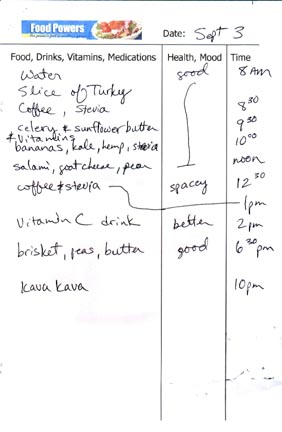 Food Powers
Date: Sept 3
Food, Drinks, Vitamins, Medications Health, Mood Time
Water good 8 AM
Slice of Turky
Coffee, Stevia 8 30
celery & sunflower butter 9 30
* Vitamins
bananas, kale, hemp, stevia 10 00
salami, goat cheese, pear noon
coffee & stevia spacey 12 30
1pm
Vitamin C drink better 2pm
brisket, peas, butter good 6 30 pm
Kava Kava 10pm